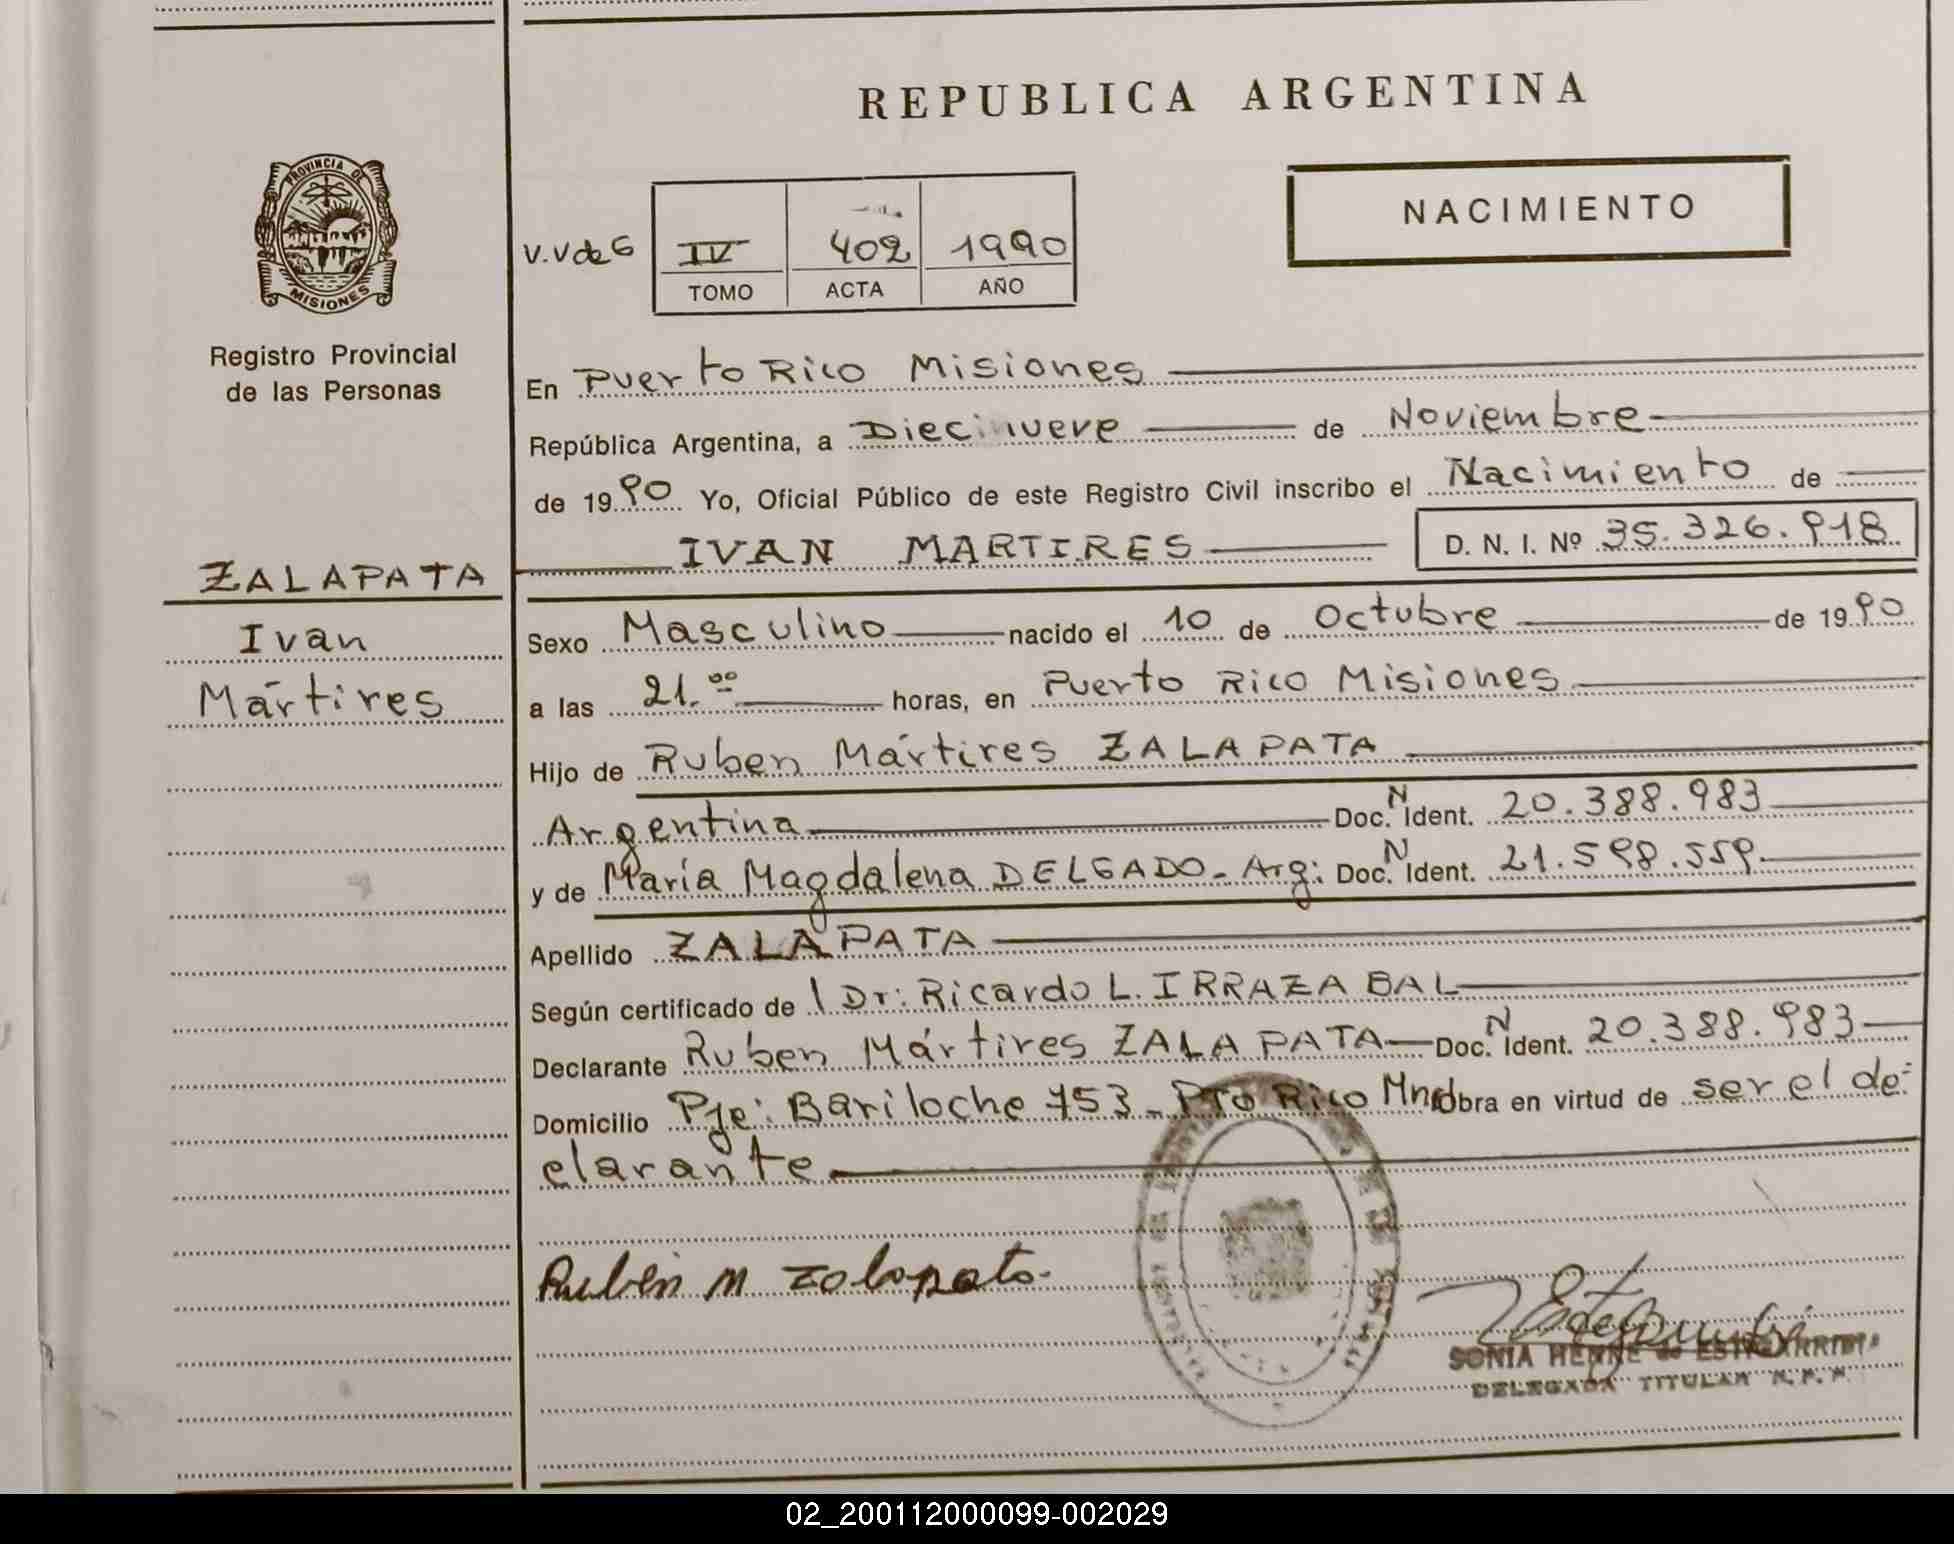 REPUBLICA ARGENTINA
NACIMIENTO
PROVINCIA DE
MISIONES
Registro Provincial
de las Personas
V.V de G
IV 402 1990
TOMO ACTA AÑO
En Puerto Rico Misiones
República Argentina, a Diecinueve de Noviembre
de 1990 Yo, Oficial Público de este Registro Civil inscribo el Nacimiento de
IVAN MARTIRES D. N. I. Nº 35.326.918
ZALAPATA
Ivan
Mártires
Sexo Masculino nacido el 10 de Octubre de 1990
a las 21.00 horas, en Puerto Rico Misiones
Hijo de Ruben Mártires ZALAPATA
Argentina Doc. N Ident. 20.388.983
y de María Magdalena DELGADO - Arg: Doc. N Ident. 21.598.559
Apellido ZALAPATA
Según certificado de l Dr: Ricardo L. IRRAZABAL
Declarante Ruben Mártires ZALAPATA Doc. N Ident. 20.388.983
Domicilio Pje: Bariloche 753 - Pto Rico Mnes Obra en virtud de ser el de-
clarante
Rubén M Zalapata
SONIA HENNE de ESTIGARRIBIA
DELEGADA TITULAR R.P.P.
02_200112000099-002029